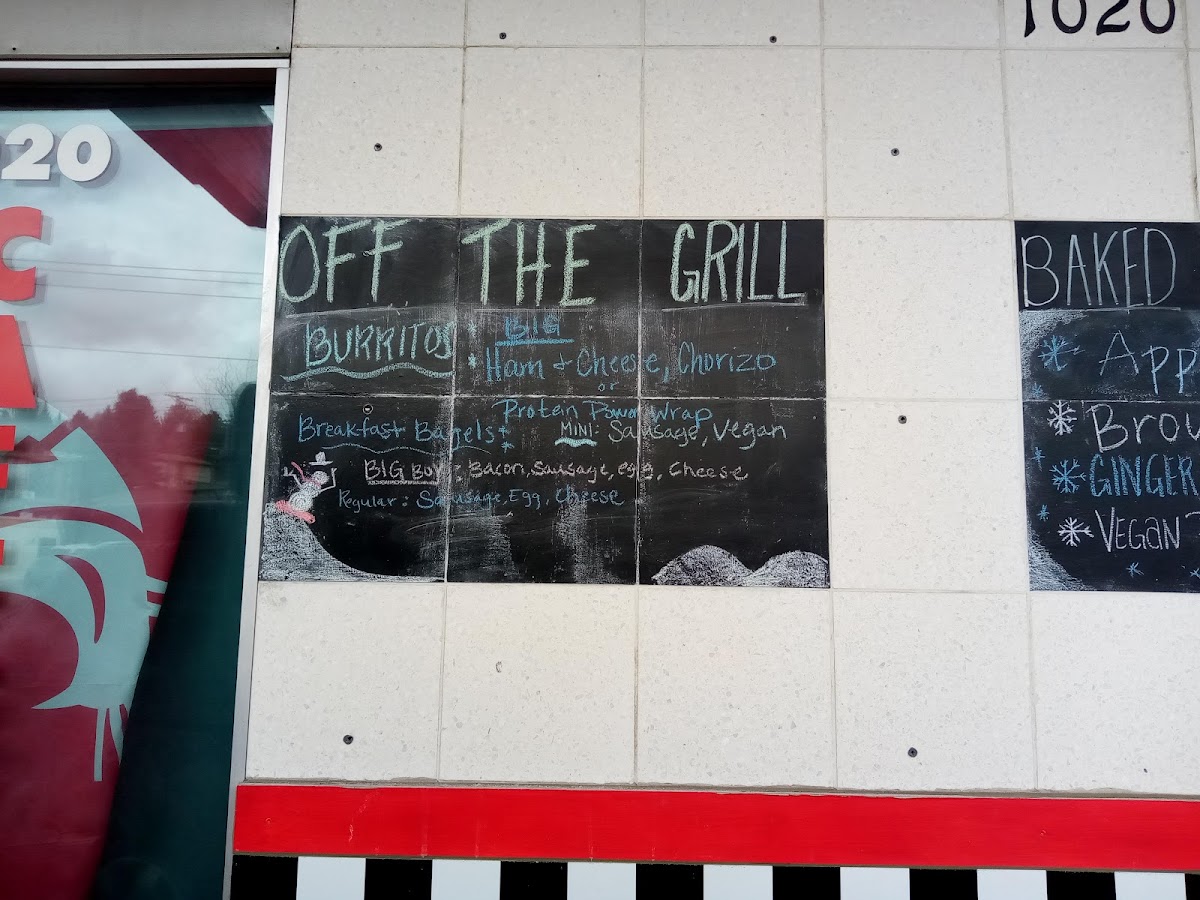 1020
20
CA
OFF THE GRILL
BURRITOS
BIG
Ham + Cheese, Chorizo
or
Protein Power Wrap
MINI: Sausage, Vegan
Breakfast Bagels:
BIG BOY: Bacon, Sausage, egg, Cheese
Regular: Sausage, Egg, Cheese
BAKED
App
Brow
GINGER
VEGAN